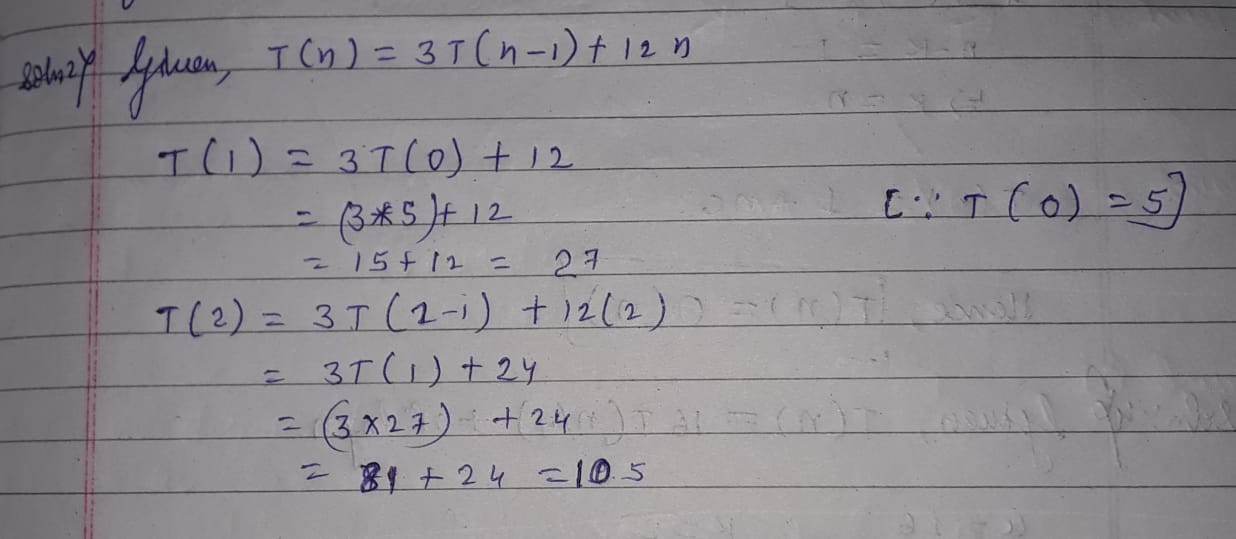 soln2) Given, T(n) = 3T(n-1) + 12n
T(1) = 3T(0) + 12
= (3*5) + 12 [∵ T(0) = 5]
= 15 + 12 = 27
T(2) = 3T(2-1) + 12(2)
= 3T(1) + 24
= (3×27) + 24
= 81 + 24 = 105